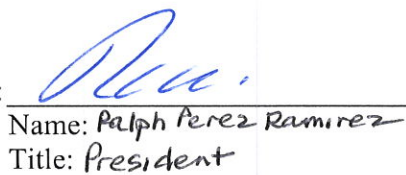 :
Name: Palph Perez Ramirez
Title: President